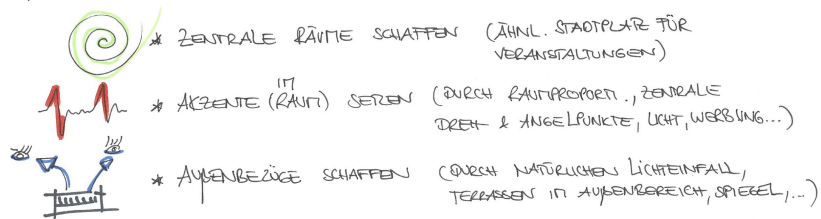 * ZENTRALE RÄUME SCHAFFEN (ÄHNL. STADTPLATZ FÜR
VERANSTALTUNGEN)
* AKZENTE (IM RAUM) SETZEN (DURCH RAUMPROPORTI., ZENTRALE
DREH- & ANGELPUNKTE, LICHT, WERBUNG...)
* AUßENBEZÜGE SCHAFFEN (DURCH NATÜRLICHEN LICHTEINFALL,
TERRASSEN IM AUßENBEREICH, SPIEGEL,...)